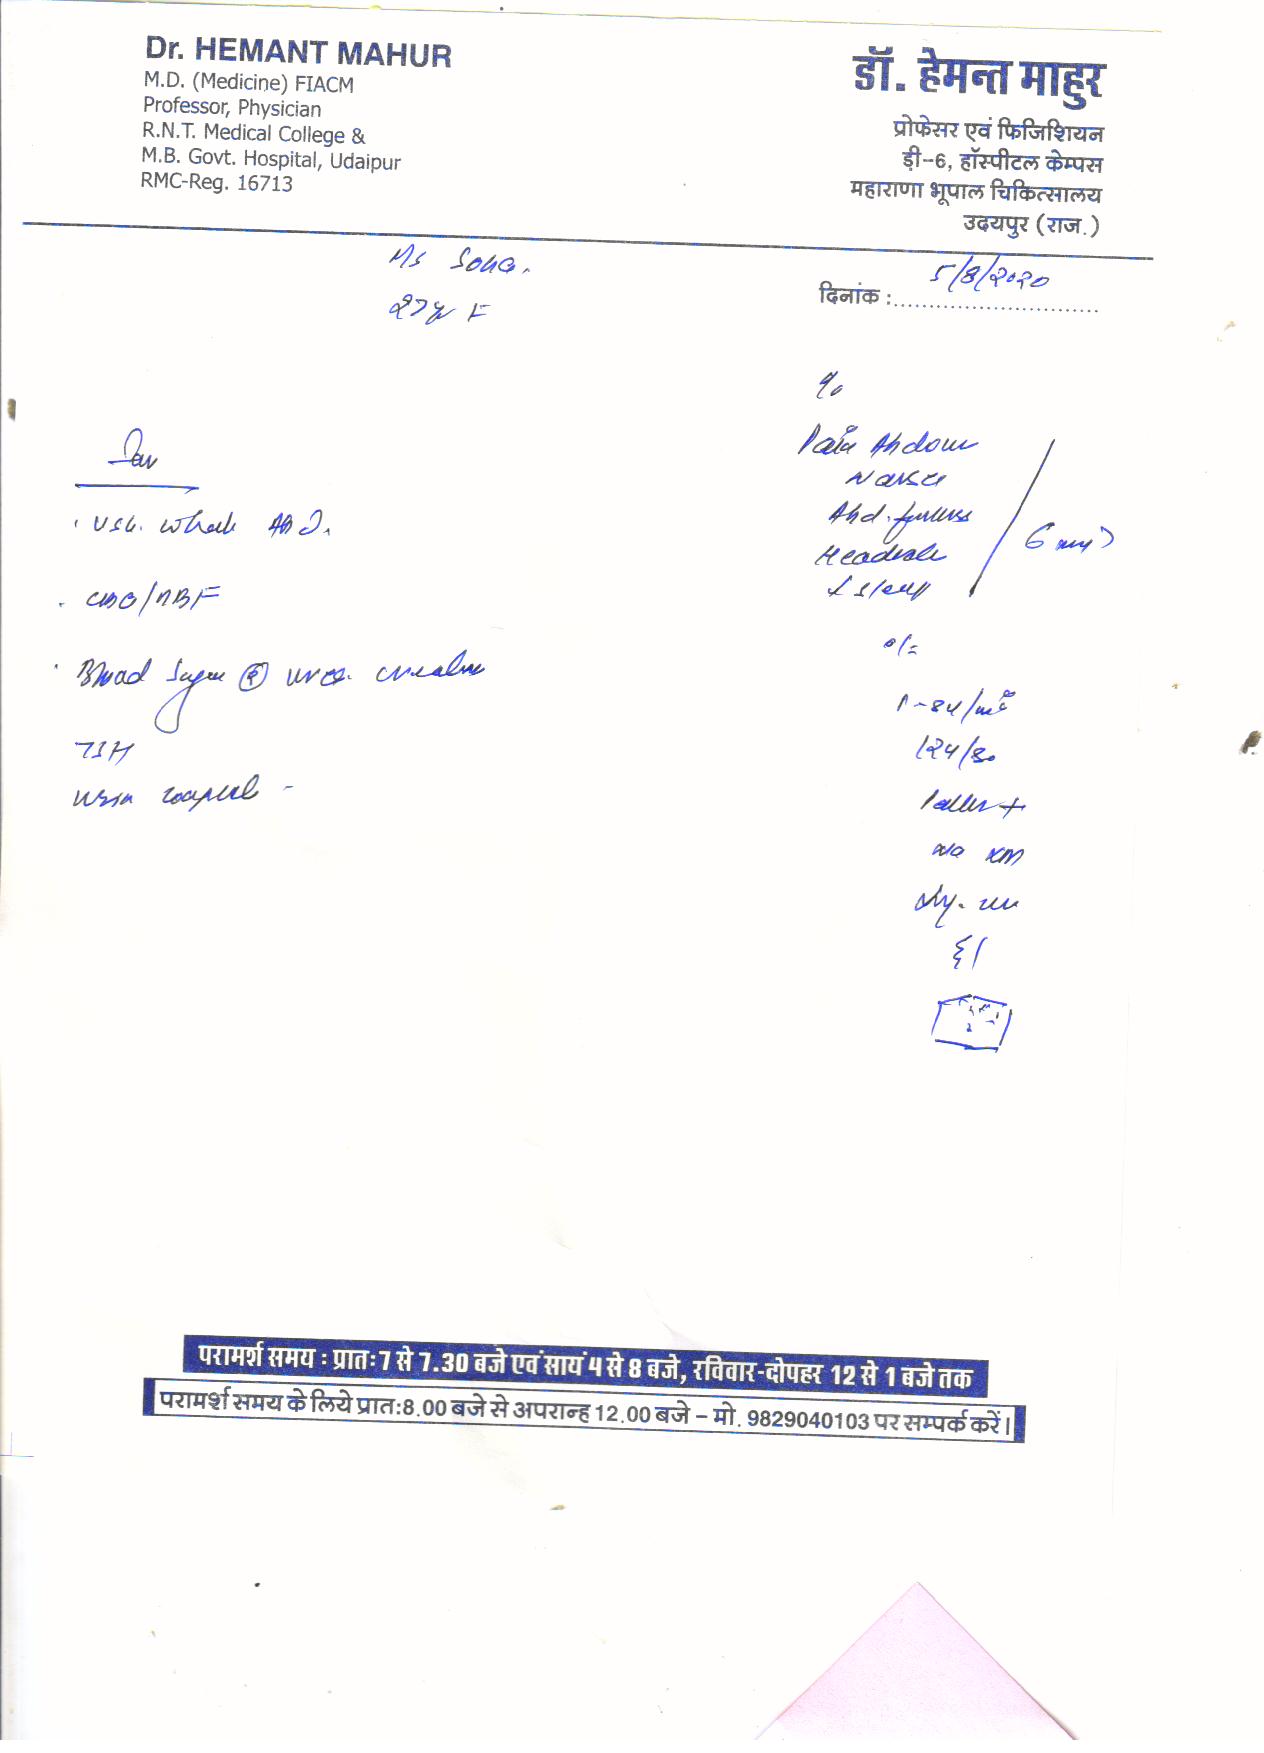 Dr. HEMANT MAHUR
M.D. (Medicine) FIACM
Professor, Physician
R.N.T. Medical College &
M.B. Govt. Hospital, Udaipur
RMC-Reg. 16713
डॉ. हेमन्त माहुर
प्रोफेसर एवं फिजिशियन
ड़ी-6, हॉस्पीटल केम्पस
महाराणा भूपाल चिकित्सालय
उदयपुर (राज.)
Ms
27y F
दिनांक : 5/8/2020
c/o
Pain Abdom
Nausea
Abd. fullness
Headache
↓ Sleep
o/e
P-84/min
124/80
Pallor +
No
USG. Whole Abd.
CBC/PBF
Blood Sugar (R) urea. creatinine
TSH
Urin complete -
परामर्श समय : प्रातः 7 से 7.30 बजे एवं सायं 4 से 8 बजे, रविवार-दोपहर 12 से 1 बजे तक
परामर्श समय के लिये प्रात:8.00 बजे से अपरान्ह 12.00 बजे – मो. 9829040103 पर सम्पर्क करें।